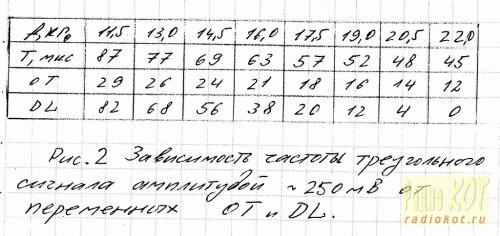 f, кГц 11,5 13,0 14,5 16,0 17,5 19,0 20,5 22,0
T, мкс 87 77 69 63 57 52 48 45
OT 29 26 24 21 18 16 14 12
DL 82 68 56 38 20 12 4 0
Рис. 2 Зависимость частоты треугольного
сигнала амплитудой ~250мВ от
переменных OT и DL.
Радио КОТ
radiokot.ru